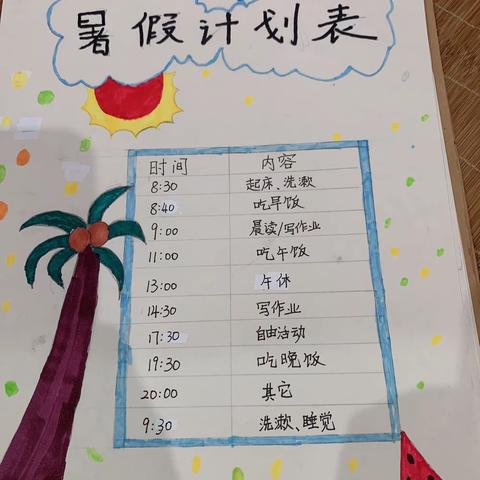 暑假计划表
时间 内容
8:30 起床、洗漱
8:40 吃早饭
9:00 晨读/写作业
11:00 吃午饭
13:00 午休
14:30 写作业
17:30 自由活动
19:30 吃晚饭
20:00 其它
9:30 洗漱、睡觉